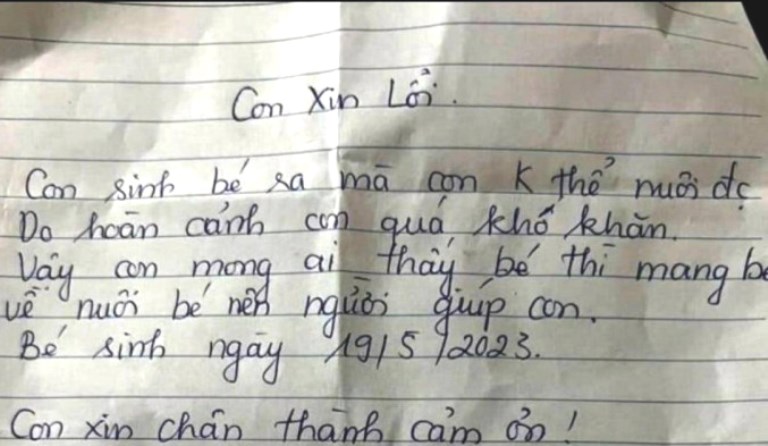 Con xin Lỗi.
Con sinh bé sa mà con K thể nuôi đc
Do hoàn cảnh con quá khó khăn.
Vậy con mong ai thấy bé thì mang bé
về nuôi bé nên người giúp con.
Bé sinh ngày 19/5/2023.
Con xin chân thành cảm ơn!